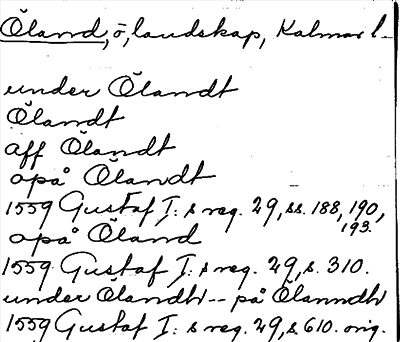 Öland, ö, landskap, Kalmar l.
under Ölandt
Ölandt
aff Ölandt
opå Ölandt
1559 Gustaf I: s reg. 29, ss. 188, 190, 193.
opå Öland
1559 Gustaf I: s reg. 29, s. 310.
under Ölandh -- på Ölanndh
1559 Gustaf I: s reg. 29, s. 610. orig.